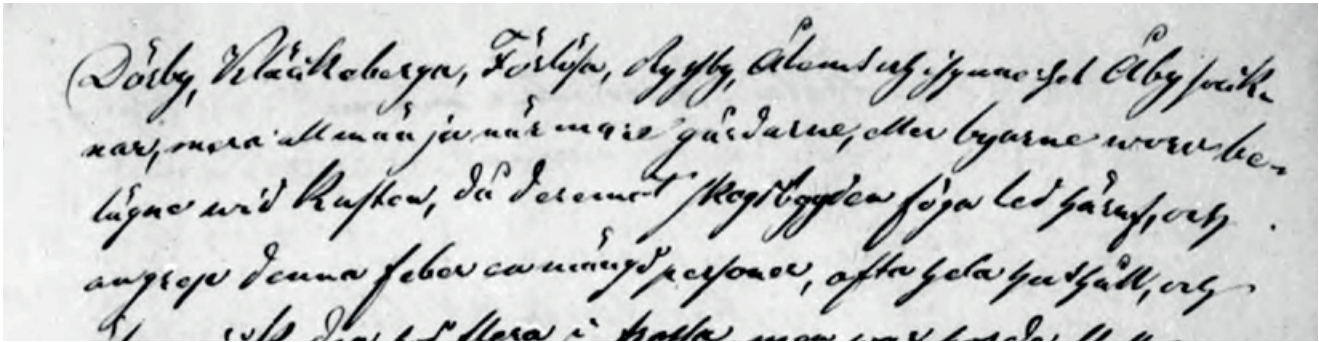 Dörby, Kläckeberga, Förlösa, Ryssby, Ålems och i synnerhet Åby sock-
nar, mera allmän ju närmare gårdarne, eller byarne woro be-
lägne wid Kusten, då deremot skogsbygden föga led häraf, och
angrep denna feber en mängd personer, ofta hela hushåll, och
flera i